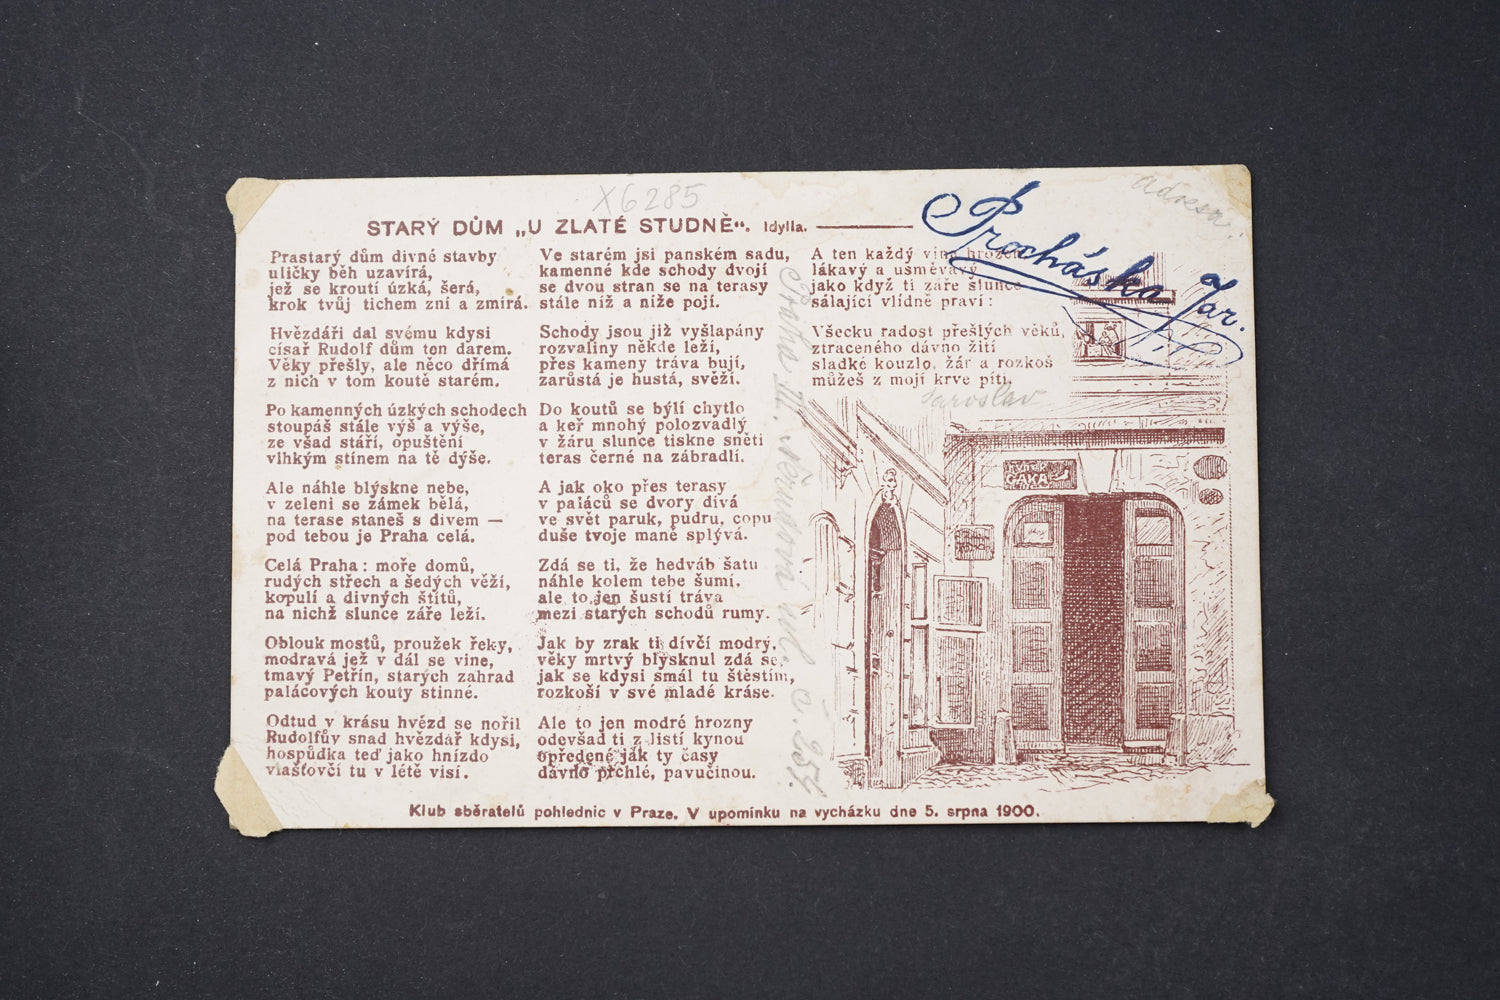 X6285
adresa!
STARÝ DŮM „U ZLATÉ STUDNĚ“. Idylla.
Procháska Jar.
Prastarý dům divné stavby
uličky běh uzavírá,
jež se kroutí úzká, šerá,
krok tvůj tichem zní a zmírá.
Hvězdáři dal svému kdysi
císař Rudolf dům ten darem.
Věky přešly, ale něco dřímá
z nich v tom koutě starém.
Po kamenných úzkých schodech
stoupáš stále výš a výše,
ze všad stáří, opuštění
vlhkým stínem na tě dýše.
Ale náhle blýskne nebe,
v zeleni se zámek bělá,
na terase staneš s divem —
pod tebou je Praha celá.
Celá Praha: moře domů,
rudých střech a šedých věží,
kopulí a divných štítů,
na nichž slunce záře leží.
Oblouk mostů, proužek řeky,
modravá jež v dál se vine,
tmavý Petřín, starých zahrad
palácových kouty stinné.
Odtud v krásu hvězd se nořil
Rudolfův snad hvězdář kdysi,
hospůdka teď jako hnízdo
vlašťovčí tu v létě visí.
Ve starém jsi panském sadu,
kamenné kde schody dvojí
se dvou stran se na terasy
stále níž a níže pojí.
Schody jsou již vyšlapány
rozvaliny někde leží,
přes kameny tráva bují,
zarůstá je hustá, svěží.
Do koutů se býlí chytlo
a keř mnohý polozvadlý
v žáru slunce tiskne sněti
teras černé na zábradlí.
A jak oko přes terasy
v paláců se dvory dívá
ve svět paruk, pudru, copu
duše tvoje maně splývá.
Zdá se ti, že hedváb šatu
náhle kolem tebe šumí,
ale to jen šustí tráva
mezi starých schodů rumy.
Jak by zrak ti dívčí modrý,
věky mrtvý blýsknul zdá se,
jak se kdysi smál tu štěstím,
rozkoší v své mladé kráse.
Ale to jen modré hrozny
oděvšad ti z listí kynou
opředené jak ty časy
dávno prchlé, pavučinou.
A ten každý vína hrozen
lákavý a usměvavý
jako když ti záře slunce
sálající vlídně praví:
Všecku radost přešlých věků,
ztraceného dávno žití
sladké kouzlo, žár a rozkoš
můžeš z mojí krve píti.
Jaroslav
Praha III. č. 254.
Klub sběratelů pohlednic v Praze. V upomínku na vycházku dne 5. srpna 1900.